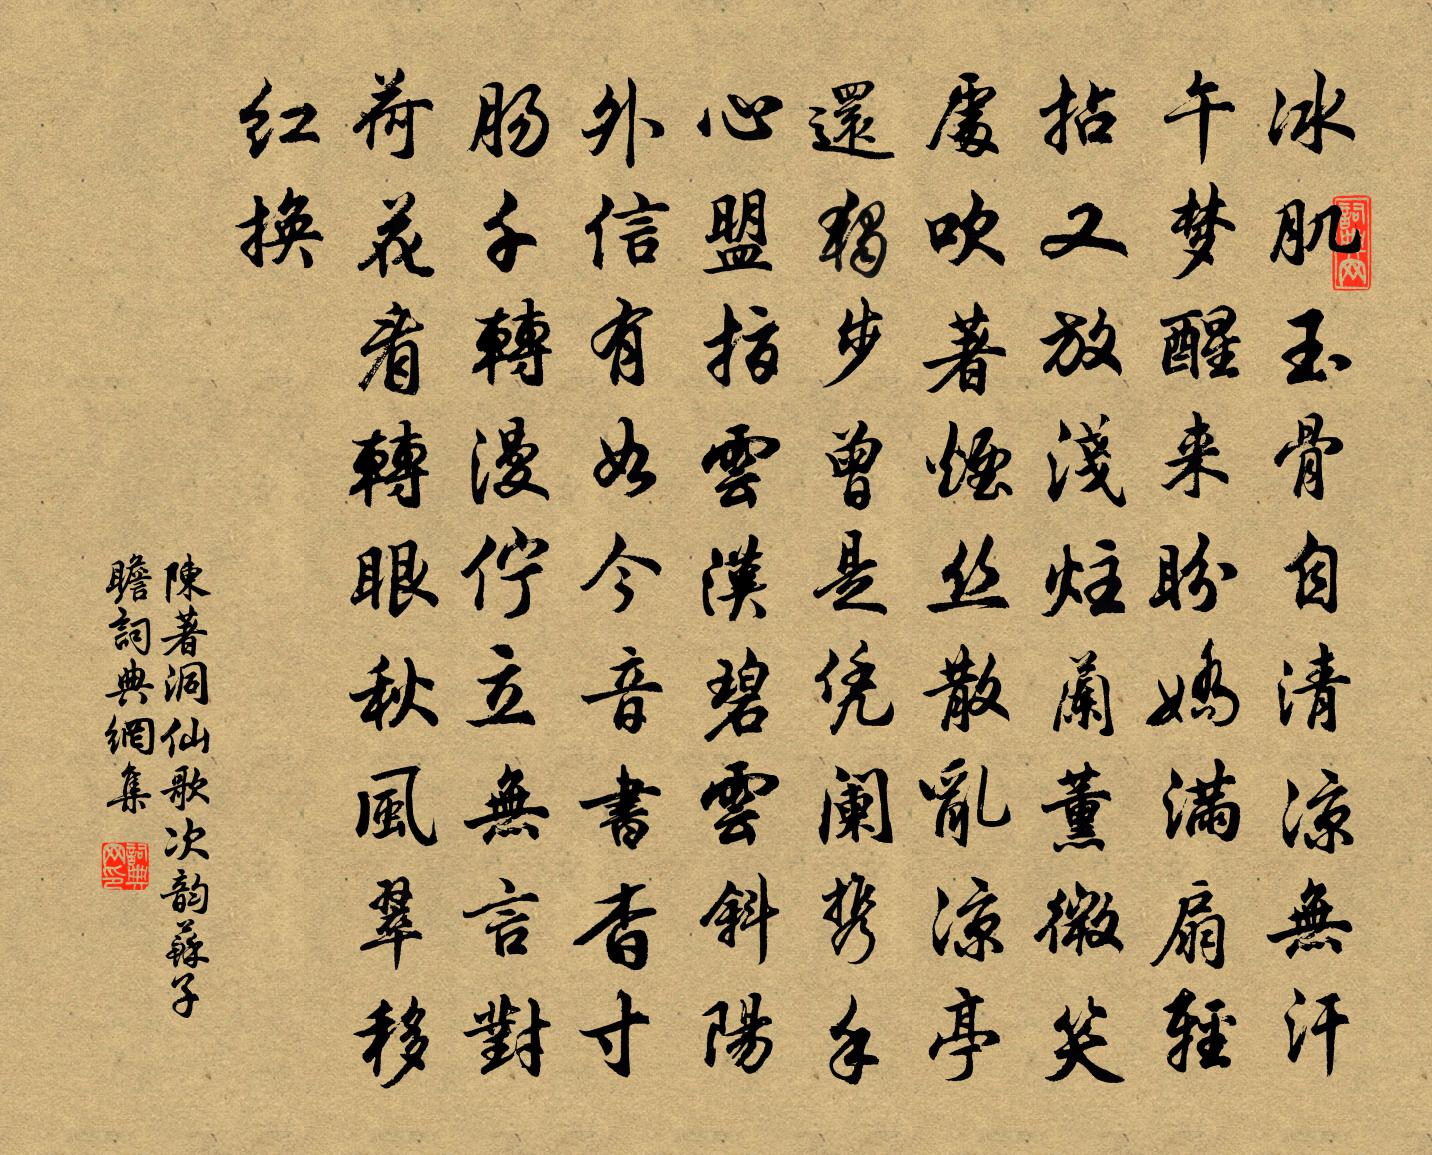 冰肌玉骨自清涼無汗
午梦醒来盼嬌满扇輕
拈又放淺炷蘭薰微笑
處吹著煙丝散亂涼亭
還獨步曾是凭阑携手
心盟指雲漢碧雲斜陽
外信有如今音書杳寸
肠千轉漫佇立無言對
荷花看轉眼秋風翠移
红换
陳著洞仙歌次韵蘇子
瞻詞典網集